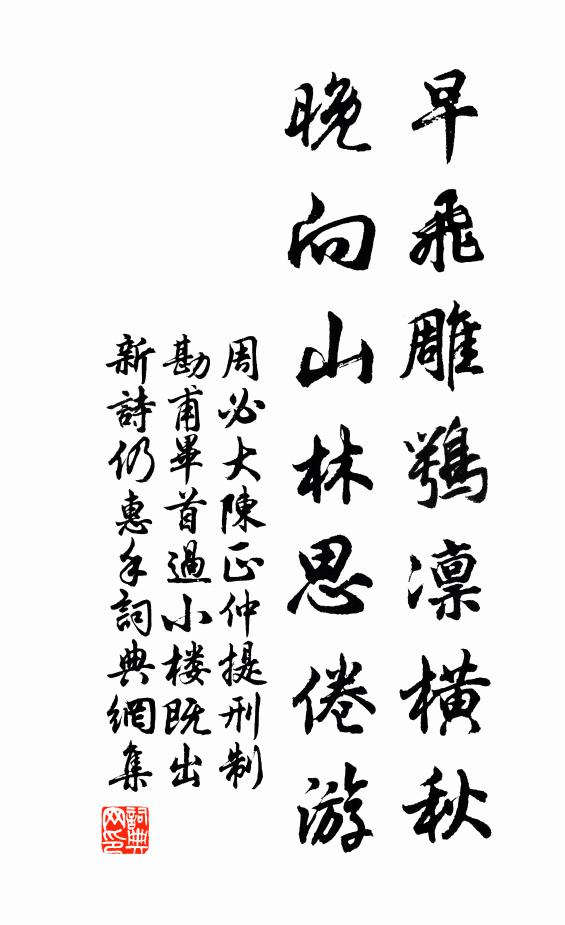 早飛雕鶚凛橫秋
晚向山林思倦游
周必大陳正仲提刑制
勘甫畢首過小楼既出
新詩仍惠手詞典網集
詞典网印